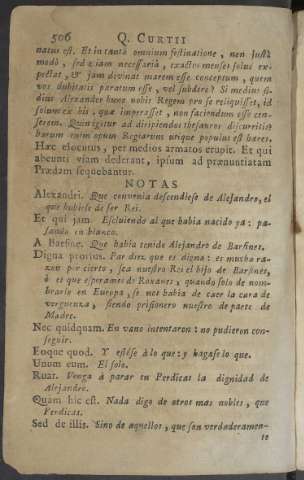 506 Q. CURTII
natus est. Et in tanta omnium festinatione, non justâ
modò, sed etiam necessariâ, exactos menses solus ex-
pectat, & jam divinat marem esse conceptum, quem
vos dubitatis paratum esse, vel subdere? Si medius fi-
dius Alexander hunc nobis Regem pro se reliquisset, id
solum ex his, quæ imperasset, non faciendum esse cen-
serem. Quin igitur ad diripiendos thesauros discurritis?
harum enim opum Regiarum utique populus est hæres.
Hæc elocutus, per medios armatos erupit. Et qui
abeunti viam dederant, ipsum ad prænuntiatam
Prædam sequebantur.
NOTAS
Alexandri. Que convenia descendiese de Alejandro, el
que hubiese de ser Rei.
Et qui jam. Escluiendo al que habia nacido ya: pa-
sando en blanco.
A Barsine. Que habia tenido Alejandro de Barsines.
Digna prorsus. Par diez que es digna: es mucha ra-
zon por cierto, sea nuestro Rei el hijo de Barsines,
ò el que esperamos de Roxanes, quando solo de nom-
brarlo en Europa, se nos habia de caer la cara de
verguenza, siendo prisionero nuestro de parte de
Madre.
Nec quidquam. En vano intentaron: no pudieron con-
seguir.
Eoque quod. Y estése à lo que: y hagase lo que.
Unum eum. El solo.
Ruat. Venga à parar en Perdicas la dignidad de
Alejandro.
Quam hic est. Nada digo de otros mas nobles, que
Perdicas.
Sed de illis. Sino de aquellos, que son verdaderamen-
te